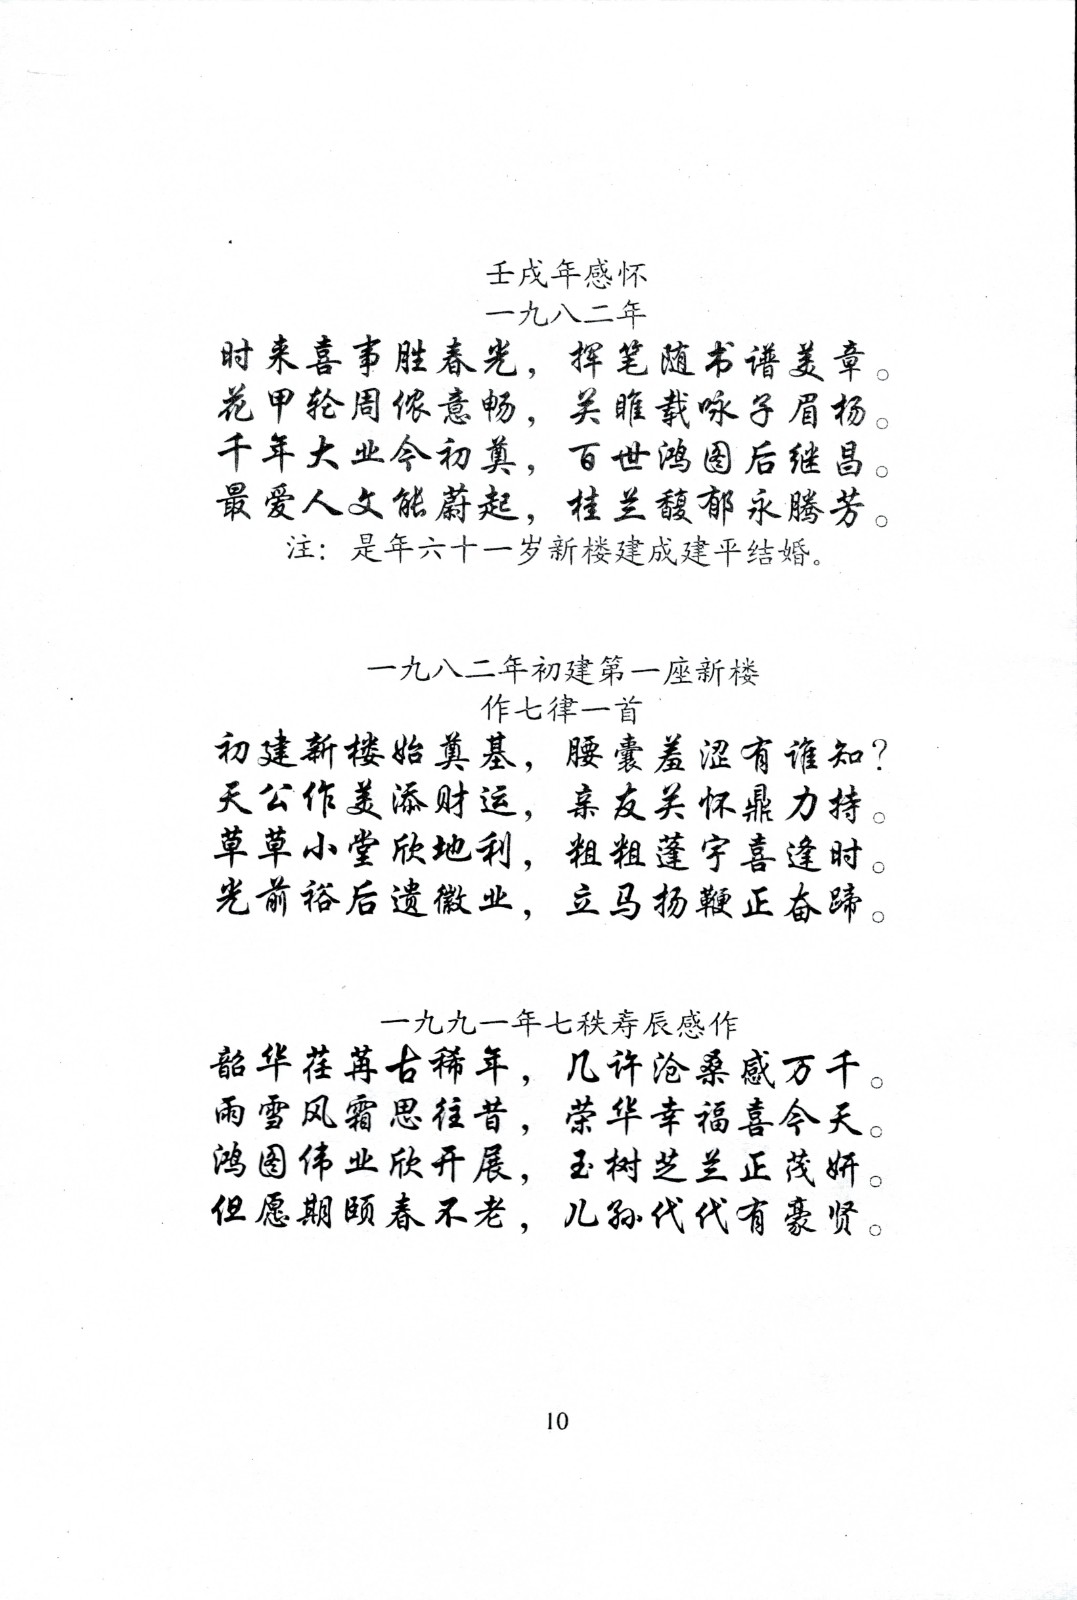 壬戌年感怀
一九八二年
时来喜事胜春光，挥笔随书谱美章。
花甲轮周侬意畅，关雎载咏子眉杨。
千年大业今初奠，百世鸿图后继昌。
最爱人文能蔚起，桂兰馥郁永腾芳。
注：是年六十一岁新楼建成建平结婚。
一九八二年初建第一座新楼
作七律一首
初建新楼始奠基，腰囊羞涩有谁知？
天公作美添财运，亲友关怀鼎力持。
草草小堂欣地利，粗粗蓬宇喜逢时。
光前裕后遗徽业，立马扬鞭正奋蹄。
一九九一年七秩寿辰感作
韶华荏苒古稀年，几许沧桑感万千。
雨雪风霜思往昔，荣华幸福喜今天。
鸿图伟业欣开展，玉树芝兰正茂妍。
但愿期颐春不老，儿孙代代有豪贤。
10